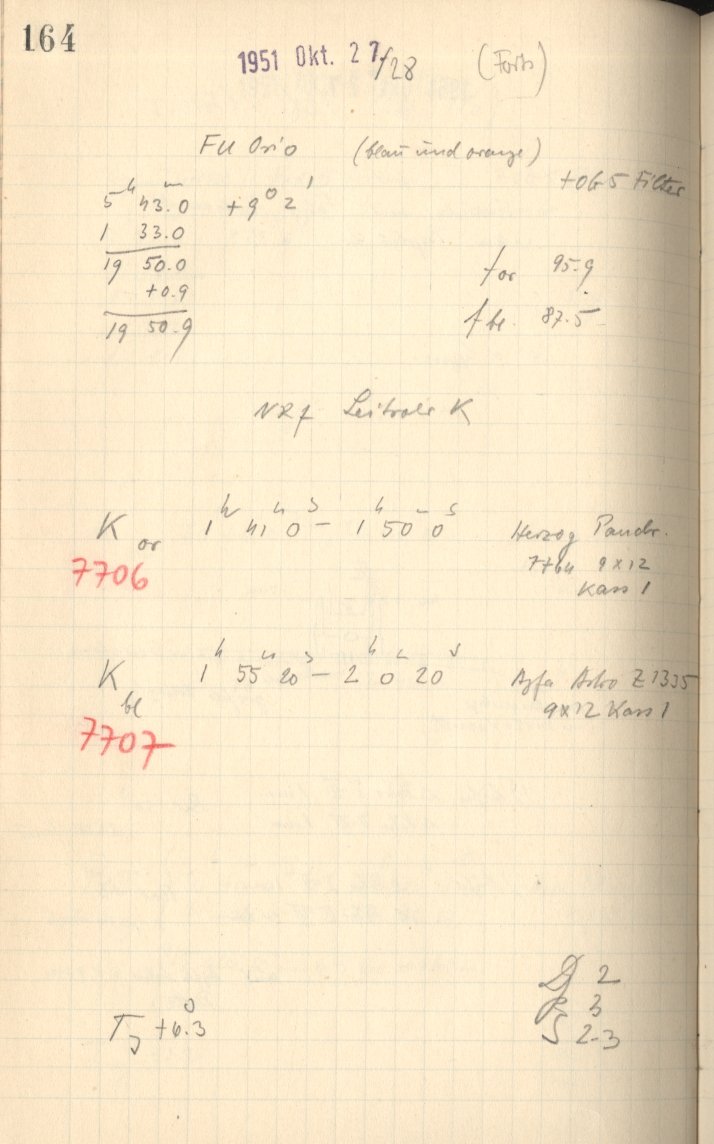 164
1951 Okt. 27/28 (Forts)
FU Orio (blau und orange)
+OG5 Filter
5ʰ 43.0ᵐ +9° 2'
1 33.0
19 50.0
+0.9
19 50.9
f or 95.9
f bl. 87.5
NRf Leitrohr K
K or 1ʰ 41ᵐ 0ˢ – 1ʰ 50ᵐ 0ˢ Herzog Panchr.
7706
7764 9x12
Kass 1
K bl 1ʰ 55ᵐ 20ˢ – 2ʰ 0ᵐ 20ˢ Agfa Astro Z 1335
7707
9x12 Kass 1
D 2
3
S 2-3
T +6.3°